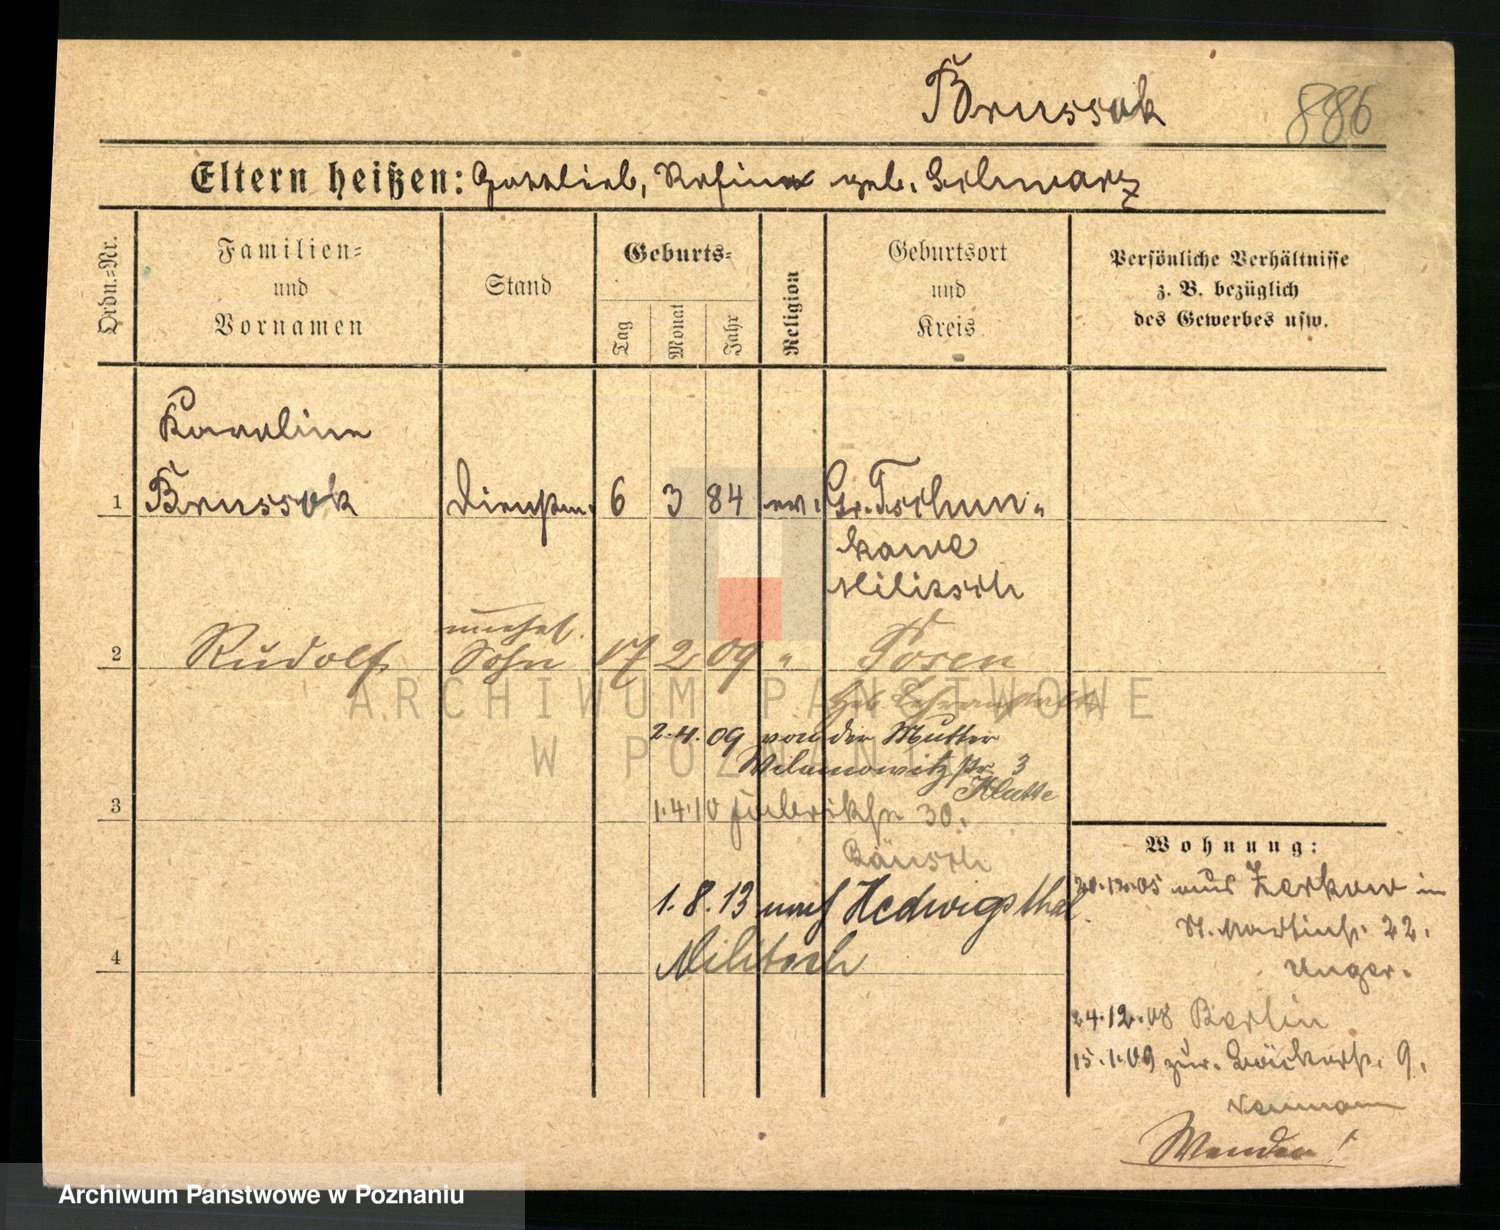 Brussok 886
Eltern heißen: Gottlieb, Rosina geb. Schwarz
Ordn.=Nr.
Familien=
und
Vornamen
Stand
Geburts=
Tag
Monat
Jahr
Religion
Geburtsort
und
Kreis
Persönliche Verhältnisse
z. B. bezüglich
des Gewerbes usw.
Karoline
1 Brussok Dienstm. 6 3 84 ev. Gr. Tschun-
kawe
Militsch
unehel.
2 Rudolf Sohn 17 2 09 " Posen
Heb. Lehranstalt
2.4.09 von der Mutter
Wilamowitzstr. 3
Klatte
3
1.4.10 Fabrikstr 30.
Bänsch
1.8.13 nach Hedwigsthal
4
Militsch
Wohnung:
20.12.05 aus Zerkow in
St. Martinstr. 22.
Unger.
24.12.08 Berlin
15.1.09 zur. Bäckerstr. 9.
Neumann
Wenden!
ARCHIWUM PAŃSTWOWE
W POZNANIU
Archiwum Państwowe w Poznaniu